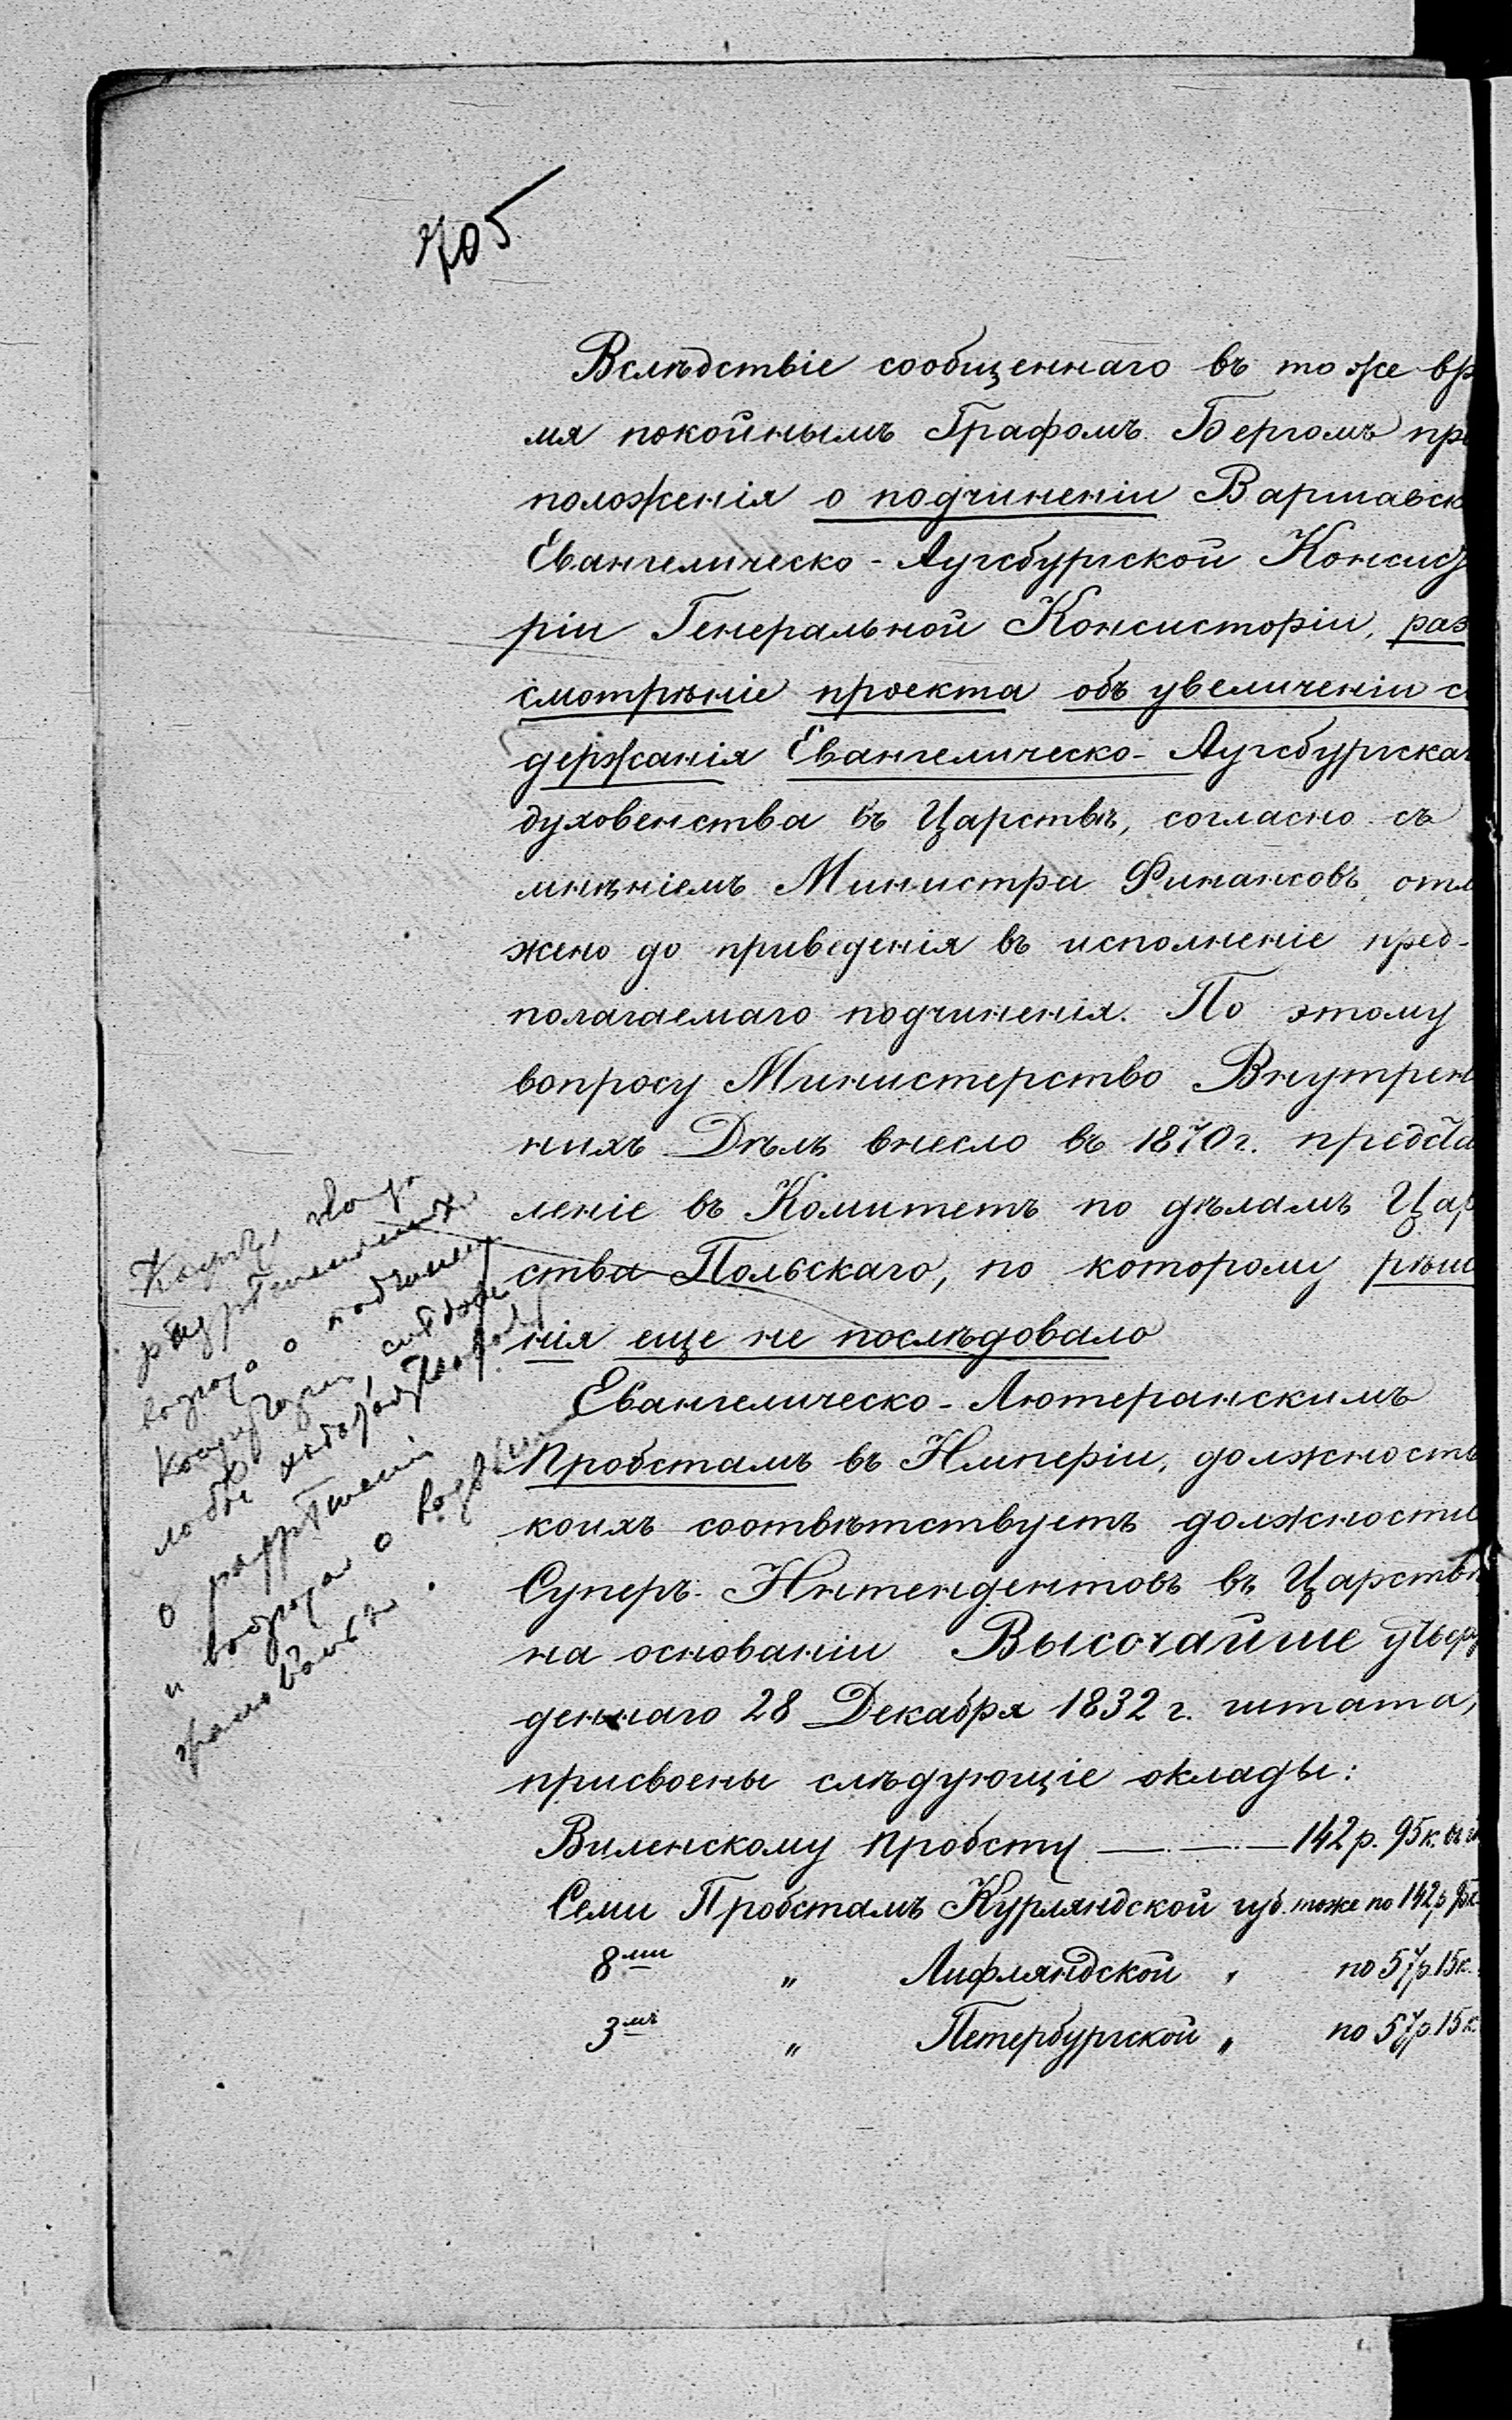 705
Вслѣдствіе сообщеннаго въ то же вр
мя покойнымъ Графомъ Бергомъ пр
положенія о подчиненіи Варшавск
Евангелическо-Аугсбургской Консист
ріи Генеральной Консисторіи, раз
смотрѣніе проекта объ увеличеніи с
держанія Евангелическо-Аугсбургска
духовенства въ Царствѣ, согласно съ
мнѣніемъ Министра Финансовъ, отл
жено до приведенія въ исполненіе пред-
полагаемаго подчиненія. По этому
вопросу Министерство Внутрен
нихъ Дѣлъ внесло въ 1870 г. предста
леніе въ Комитетъ по дѣламъ Цар
ства Польскаго, по которому рѣше
нія еще не послѣдовало
Евангелическо-Лютеранскимъ
Пробстамъ въ Имперіи, должность
коихъ соотвѣтствуетъ должности
Суперъ-Интендентовъ въ Царствѣ
на основаніи Высочайше утвер
деннаго 28 Декабря 1832 г. штата,
присвоены слѣдующіе оклады:
Виленскому Пробсту — — 142 р. 95 к. въ г
Семи Пробстамъ Курляндской губ. тоже по 142 р 95 к
8ми „ Лифляндской „ по 57 р. 15 к.
3мъ „ Петербургской „ по 57 р. 15 к.
вопроса о подчинен
о разрѣшеніи
и вопроса о
жалованья.